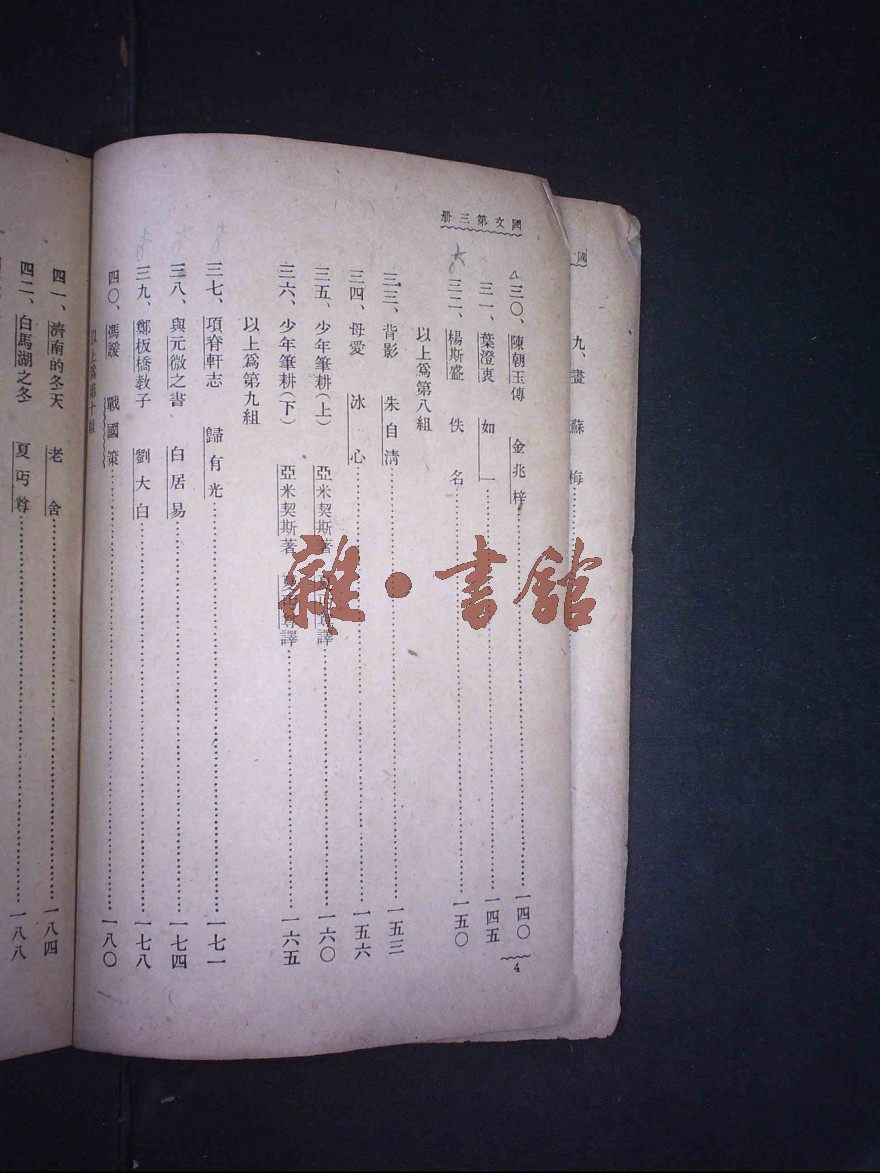 國文第三册
三〇、陳朝玉傳 金兆梓……一四〇
三一、葉澄衷 如一……一四五
三二、楊斯盛 佚名……一五〇
以上爲第八組
三三、背影 朱自清……一五三
三四、母愛 冰心……一五六
三五、少年筆耕(上) 亞米契斯著 夏丏尊譯……一六〇
三六、少年筆耕(下) 亞米契斯著 夏丏尊譯……一六五
以上爲第九組
三七、項脊軒志 歸有光……一七一
三八、與元微之書 白居易……一七四
三九、鄭板橋教子 劉大白……一七八
四〇、馮諼 戰國策……一八〇
以上爲第十組
四一、濟南的冬天 老舍……一八四
四二、白馬湖之冬 夏丏尊……一八八
4
國
九、畫 蘇梅……
雜·書館